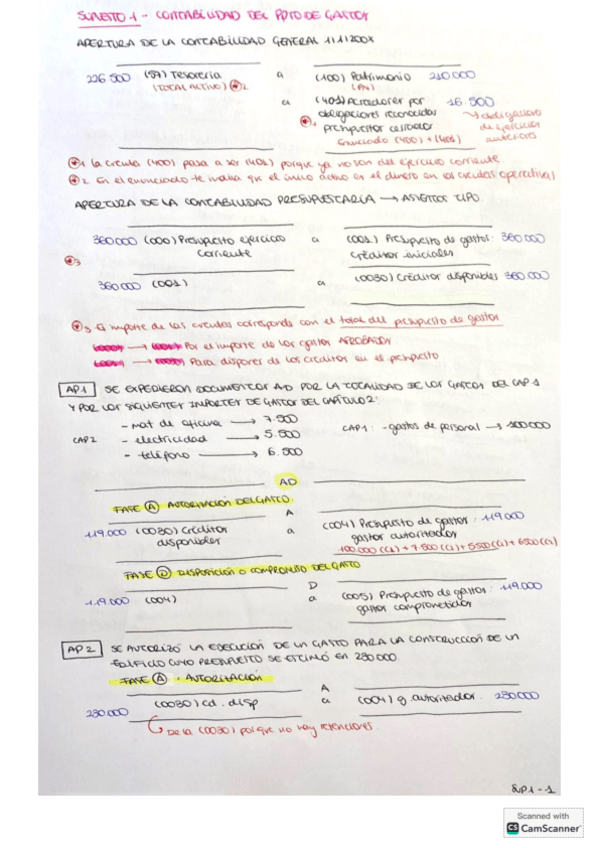 SUPUESTO 1 - CONTABILIDAD DEL PPTO DE GASTOS
APERTURA DE LA CONTABILIDAD GENERAL 1/1/200X
226.500 (57) Tesorería a (100) Patrimonio 210.000
(TOTAL ACTIVO) *2 (PN)
a (401) Acreedores por 16.500
obligaciones reconocidas → obligaciones
*1 presupuestos cerrados de ejercicios
Enunciado (400) + (401) anteriores
*1 la cuenta (400) pasa a ser (401) porque ya no son del ejercicio corriente
*2 En el enunciado te indica que el único activo es el dinero en las cuentas operativas
APERTURA DE LA CONTABILIDAD PRESUPUESTARIA → ASIENTOS TIPO
360.000 (000) Presupuesto ejercicio a (001) Presupuesto de gastos: 360.000
corriente créditos iniciales
*3
360.000 (001) a (0030) Créditos disponibles 360.000
*3 El importe de las cuentas corresponde con el total del presupuesto de gastos
→ Por el importe de los gastos APROBADOS
→ Para disponer de los créditos en el presupuesto
AP1 SE EXPIDIERON DOCUMENTOS AD POR LA TOTALIDAD DE LOS GASTOS DEL CAP 1
Y POR LOS SIGUIENTES IMPORTES DE GASTOS DEL CAPÍTULO 2:
- mat de oficina → 7.500
CAP2 - electricidad → 5.500 CAP1: - gastos de personal → 100.000
- teléfono → 6.500
AD
FASE (A) AUTORIZACIÓN DEL GASTO:
A
119.000 (0030) Créditos a (004) Presupuesto de gastos: 119.000
disponibles gastos autorizados
100.000 (C1) + 7.500 (C2) + 5500 (C2) + 6500 (C2)
FASE (D) DISPOSICIÓN O COMPROMISO DEL GASTO
D
119.000 (004) a (005) Presupuesto de gastos: 119.000
gastos comprometidos
AP2 SE AUTORIZÓ LA EJECUCIÓN DE UN GASTO PARA LA CONSTRUCCIÓN DE UN
EDIFICIO CUYO PRESUPUESTO SE ESTIMÓ EN 230.000.
FASE (A) · AUTORIZACIÓN
A
230.000 (0030) cd. disp a (004) g. autorizados. 230.000
De la (0030) porque no hay retenciones.
SUP1 - 1
Scanned with
CS CamScanner